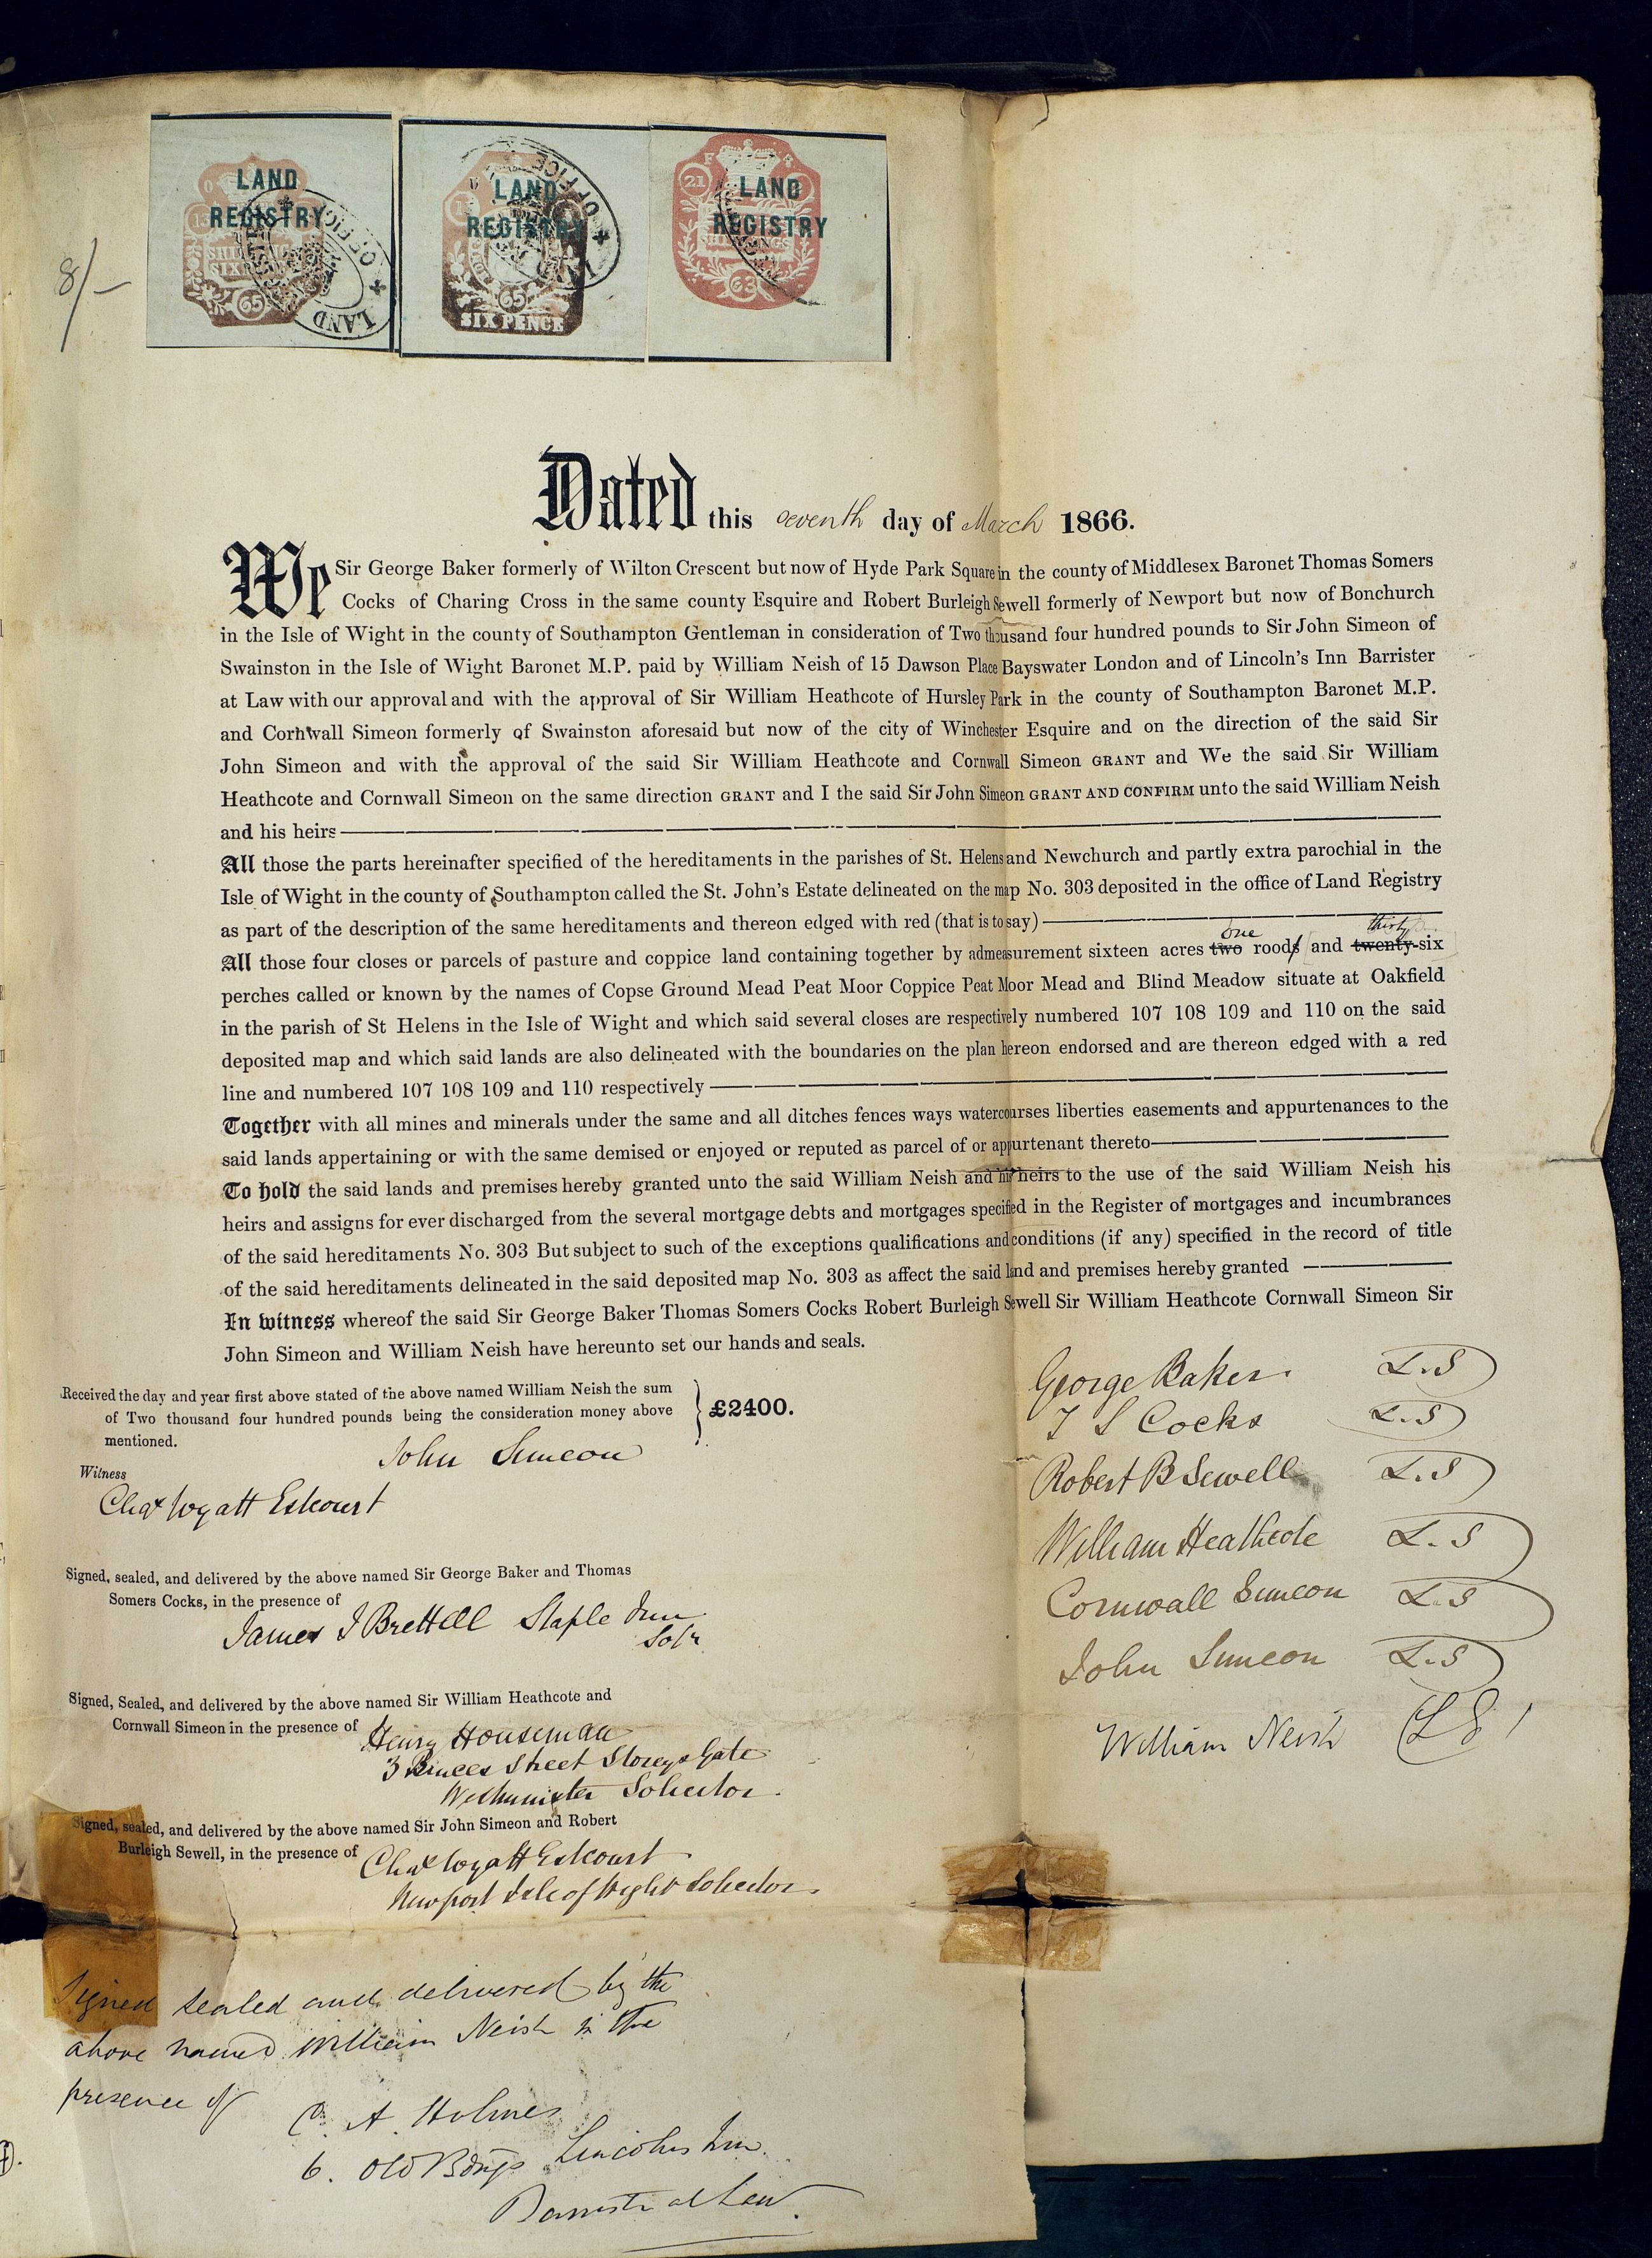 8/-
LAND
REGISTRY
LAND
REGISTRY
SIX PENCE
LAND
REGISTRY
Dated this seventh day of March 1866.
We Sir George Baker formerly of Wilton Crescent but now of Hyde Park Square in the county of Middlesex Baronet Thomas Somers
Cocks of Charing Cross in the same county Esquire and Robert Burleigh Sewell formerly of Newport but now of Bonchurch
in the Isle of Wight in the county of Southampton Gentleman in consideration of Two thousand four hundred pounds to Sir John Simeon of
Swainston in the Isle of Wight Baronet M.P. paid by William Neish of 15 Dawson Place Bayswater London and of Lincoln's Inn Barrister
at Law with our approval and with the approval of Sir William Heathcote of Hursley Park in the county of Southampton Baronet M.P.
and Cornwall Simeon formerly of Swainston aforesaid but now of the city of Winchester Esquire and on the direction of the said Sir
John Simeon and with the approval of the said Sir William Heathcote and Cornwall Simeon GRANT and We the said Sir William
Heathcote and Cornwall Simeon on the same direction GRANT and I the said Sir John Simeon GRANT AND CONFIRM unto the said William Neish
and his heirs
All those the parts hereinafter specified of the hereditaments in the parishes of St. Helens and Newchurch and partly extra parochial in the
Isle of Wight in the county of Southampton called the St. John's Estate delineated on the map No. 303 deposited in the office of Land Registry
as part of the description of the same hereditaments and thereon edged with red (that is to say)
one thirty
All those four closes or parcels of pasture and coppice land containing together by admeasurement sixteen acres two roods and twenty-six
perches called or known by the names of Copse Ground Mead Peat Moor Coppice Peat Moor Mead and Blind Meadow situate at Oakfield
in the parish of St Helens in the Isle of Wight and which said several closes are respectively numbered 107 108 109 and 110 on the said
deposited map and which said lands are also delineated with the boundaries on the plan hereon endorsed and are thereon edged with a red
line and numbered 107 108 109 and 110 respectively
Together with all mines and minerals under the same and all ditches fences ways watercourses liberties easements and appurtenances to the
said lands appertaining or with the same demised or enjoyed or reputed as parcel of or appurtenant thereto
To hold the said lands and premises hereby granted unto the said William Neish and his heirs to the use of the said William Neish his
heirs and assigns for ever discharged from the several mortgage debts and mortgages specified in the Register of mortgages and incumbrances
of the said hereditaments No. 303 But subject to such of the exceptions qualifications and conditions (if any) specified in the record of title
of the said hereditaments delineated in the said deposited map No. 303 as affect the said land and premises hereby granted
In witness whereof the said Sir George Baker Thomas Somers Cocks Robert Burleigh Sewell Sir William Heathcote Cornwall Simeon Sir
John Simeon and William Neish have hereunto set our hands and seals.
Received the day and year first above stated of the above named William Neish the sum
of Two thousand four hundred pounds being the consideration money above
mentioned.
£2400.
John Simeon
Witness
Chas Wyatt Estcourt
George Baker L.S
T S Cocks L.S
Robert B Sewell L.S
William Heathcote L.S
Cornwall Simeon L.S
John Simeon L.S
William Neish L S
Signed, sealed, and delivered by the above named Sir George Baker and Thomas
Somers Cocks, in the presence of
James J Brettell Staple Inn
Solr
Signed, Sealed, and delivered by the above named Sir William Heathcote and
Cornwall Simeon in the presence of
Henry Houseman
3 Princes Street Storeys Gate
Westminster Solicitor
Signed, sealed, and delivered by the above named Sir John Simeon and Robert
Burleigh Sewell, in the presence of
Chas Wyatt Estcourt
Newport Isle of Wight Solicitor
Signed sealed and delivered by the
above named William Neish in the
presence of
C. A. Holmes
6. Old Bdngs Lincolns Inn.
Barrister at Law.